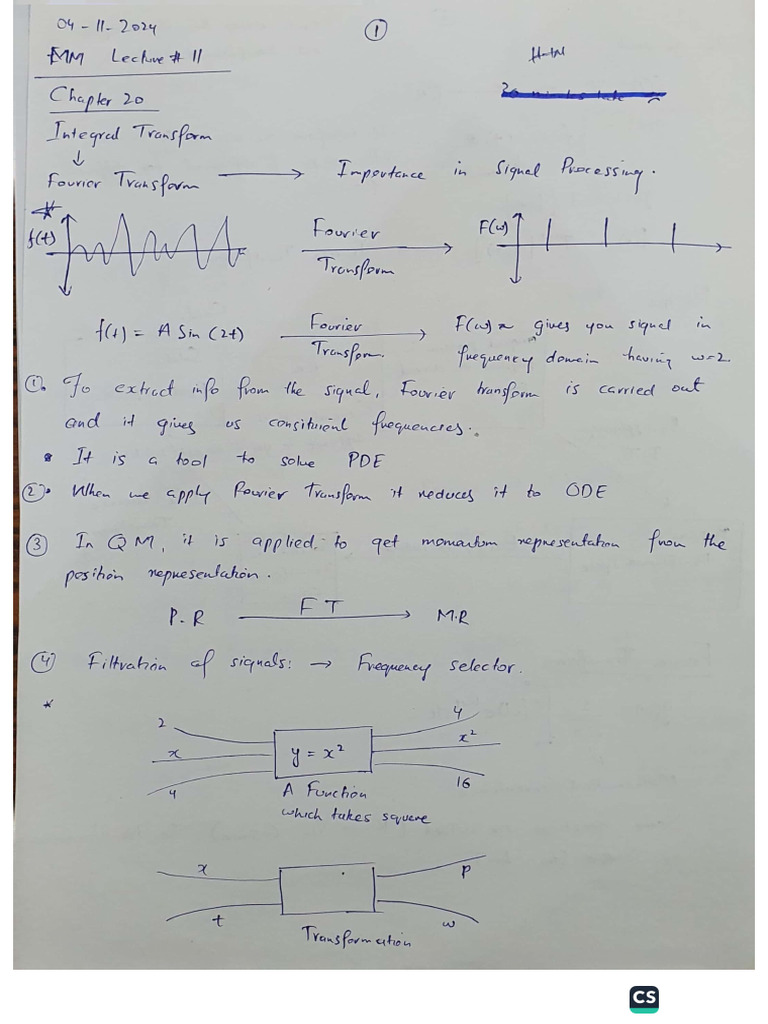 04-11-2024
1
MM Lecture # 11
H-N
Chapter 20
Integral Transform
↓
Fourier Transform → Importance in Signal Processing.
f(t) Fourier Transform → F(w)
f(t) = A Sin (2t) Fourier Transform. → F(w) ~ gives you signal in
frequency domain having w=2.
①. To extract info from the signal, Fourier transform is carried out
and it gives us consituional frequencies.
* It is a tool to solve PDE
②. When we apply Fourier Transform it reduces it to ODE
③ In QM, it is applied to get momentum representation from the
position representation.
P.R FT → M.R
④ Filtration of signals: → Frequency selector.
*
2 4
x y = x² x²
4 16
A Function
which takes square
x P
t w
Transformation
CS